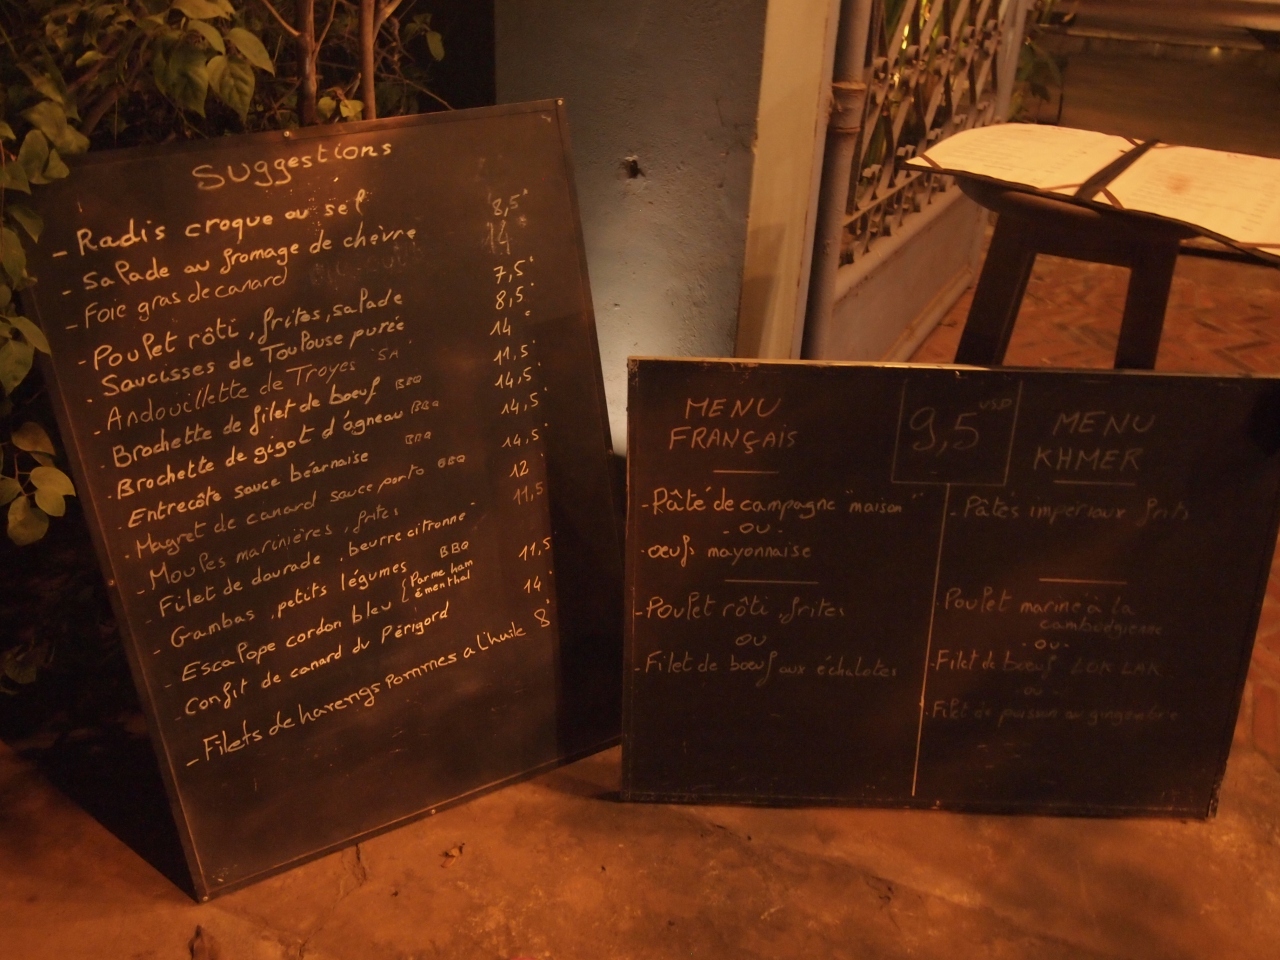 Suggestions
- Radis croque au sel
- Salade au fromage de chèvre 8,5
- Foie gras de canard 14
- Poulet rôti, frites, salade 7,5
- Saucisses de Toulouse purée 8,5
- Andouillette de Troyes "5A" 14
- Brochette de filet de boeuf BBQ 11,5
- Brochette de gigot d'agneau BBQ 14,5
- Entrecôte sauce béarnaise BBQ 14,5
- Magret de canard sauce porto BBQ 14,5
- Moules marinières, frites 12
- Filet de daurade, beurre citronné 11,5
- Gambas, petits légumes BBQ
- Escalope cordon bleu (Parme ham émenthal 11,5
- Confit de canard du Périgord 14
- Filets de harengs pommes a l'huile 8
MENU
FRANÇAIS
9,5 USD
- Pâté de campagne "maison"
- OU -
- œufs mayonnaise
- Poulet rôti, frites
OU
- Filet de bœuf aux échalotes
MENU
KHMER
- Pâtés impériaux frits
- Poulet mariné à la
cambodgienne
- OU -
- Filet de bœuf LOK LAK
- ou -
- Filet de poisson au gingembre